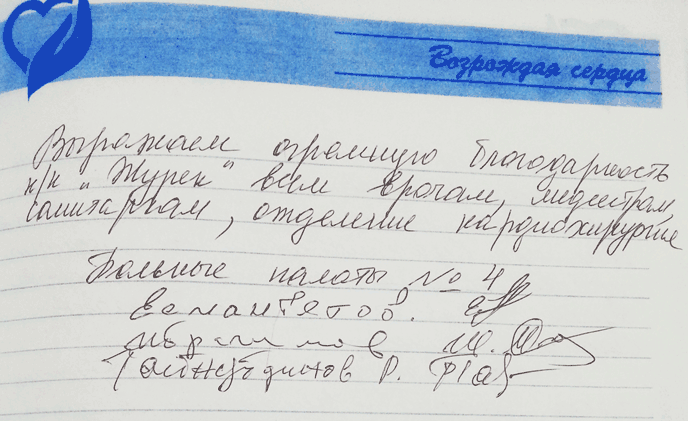 Возрождая сердца
Выражаем огромную благодарность
к/к "Жүрек" всем врачам, медсестрам,
санитаркам, отделение кардиохирургие
Больные палаты № 4
Ибрагимов Ш.
Р.